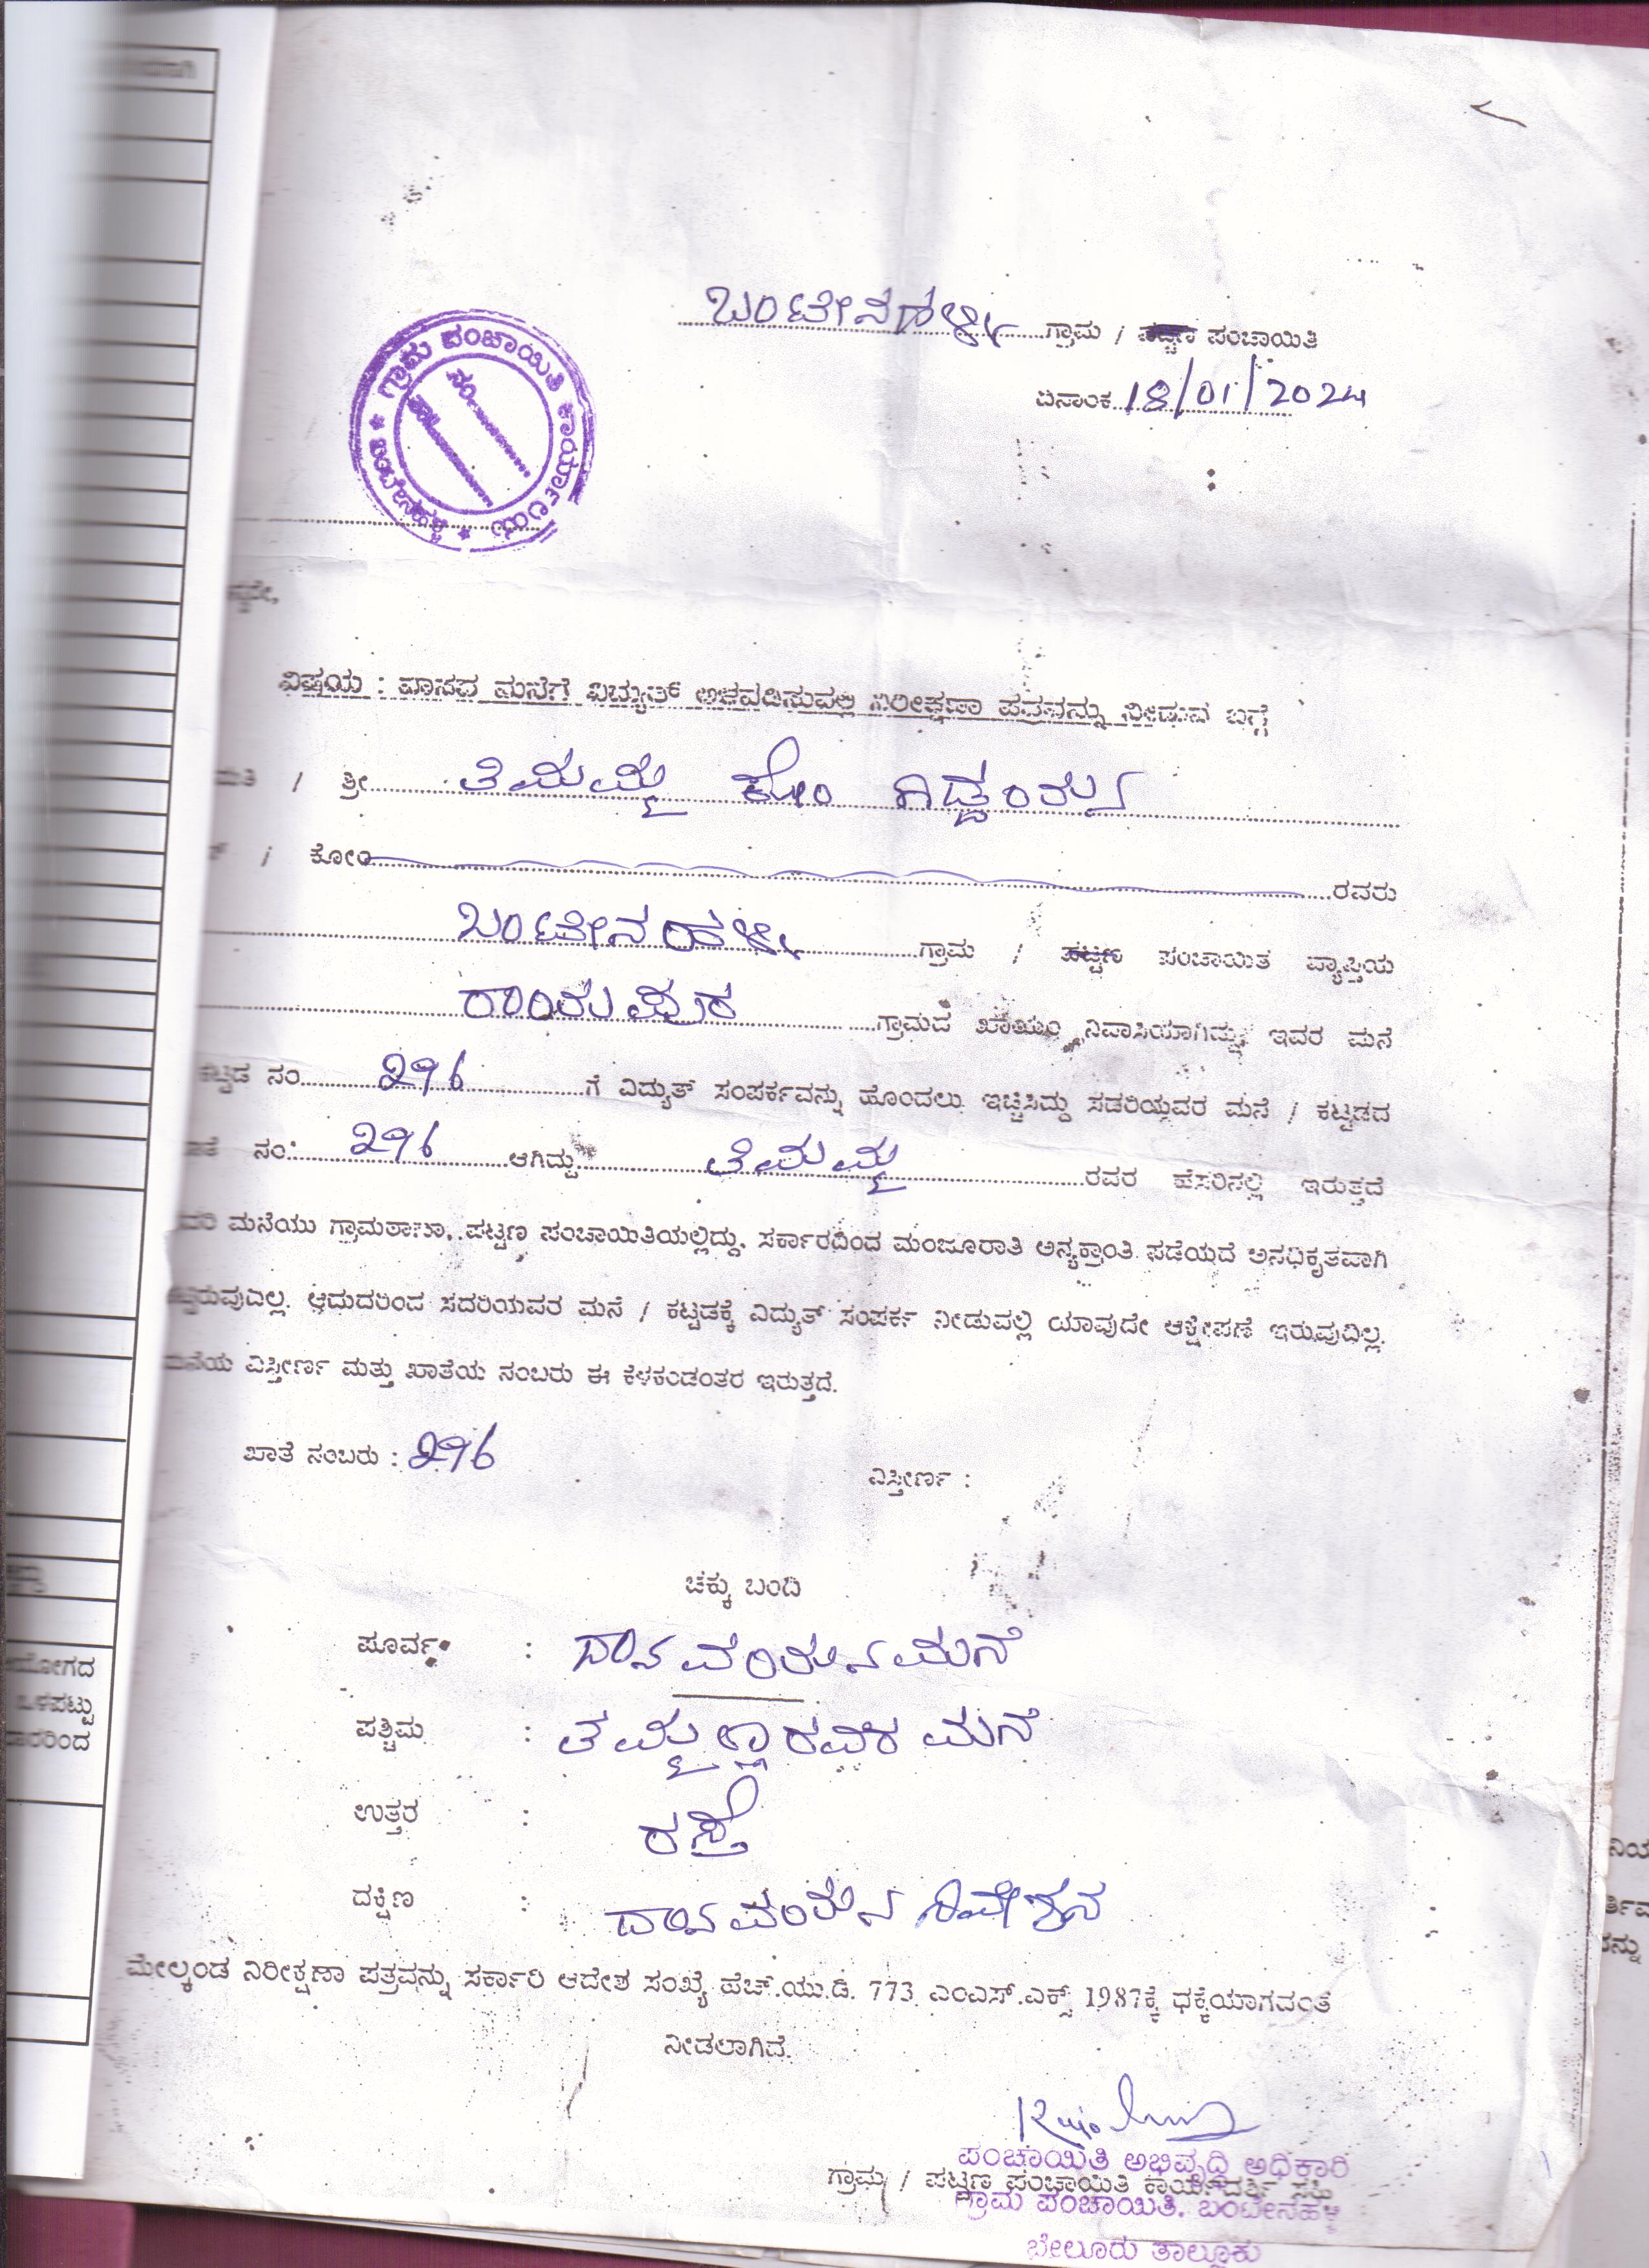 ಬಂಟೇನಹಳ್ಳಿ ಗ್ರಾಮ / ಪಟ್ಟಣ ಪಂಚಾಯಿತಿ
ದಿನಾಂಕ 18/01/2024
ಗ್ರಾಮ ಪಂಚಾಯಿತಿ ಕಾರ್ಯಾಲಯ
ನಂ
ಬಂಟೇನಹಳ್ಳಿ
ವಿಷಯ : ವಾಸದ ಮನೆಗೆ ವಿದ್ಯುತ್ ಅಳವಡಿಸುವಲ್ಲಿ ನಿರೀಕ್ಷಣಾ ಪತ್ರವನ್ನು ನೀಡುವ ಬಗ್ಗೆ
ಮತಿ / ಶ್ರೀ ತಿಮಮ್ಮ ಕೋಂ ಗಿಡ್ಡಯ್ಯ
/ ಕೋಂ ರವರು
ಬಂಟೇನಹಳ್ಳಿ ಗ್ರಾಮ / ಪಟ್ಟಣ ಪಂಚಾಯಿತ ವ್ಯಾಪ್ತಿಯ
ರಾಯಪುರ ಗ್ರಾಮದ ಖಾಯಂ ನಿವಾಸಿಯಾಗಿದ್ದು, ಇವರ ಮನೆ
ಕಟ್ಟಡ ನಂ 296 ಗೆ ವಿದ್ಯುತ್ ಸಂಪರ್ಕವನ್ನು ಹೊಂದಲು ಇಚ್ಚಿಸಿದ್ದು ಸದರಿಯವರ ಮನೆ / ಕಟ್ಟಡದ
ನಂ: 296 ಆಗಿದ್ದು ತಿಮಮ್ಮ ರವರ ಹೆಸರಿನಲ್ಲಿ ಇರುತ್ತದೆ
ಮನೆಯು ಗ್ರಾಮಠಾಣಾ, ಪಟ್ಟಣ ಪಂಚಾಯಿತಿಯಲ್ಲಿದ್ದು, ಸರ್ಕಾರದಿಂದ ಮಂಜೂರಾತಿ ಅನ್ಯಕ್ರಾಂತಿ ಪಡೆಯದೆ ಅನಧಿಕೃತವಾಗಿ
ಆದುದರಿಂದ ಸದರಿಯವರ ಮನೆ / ಕಟ್ಟಡಕ್ಕೆ ವಿದ್ಯುತ್ ಸಂಪರ್ಕ ನೀಡುವಲ್ಲಿ ಯಾವುದೇ ಆಕ್ಷೇಪಣೆ ಇರುವುದಿಲ್ಲ.
ಮನೆಯ ವಿಸ್ತೀರ್ಣ ಮತ್ತು ಖಾತೆಯ ನಂಬರು ಈ ಕೆಳಕಂಡಂತರ ಇರುತ್ತದೆ.
ಖಾತೆ ನಂಬರು : 296 ವಿಸ್ತೀರ್ಣ :
ಚಕ್ಕು ಬಂದಿ
ಪೂರ್ವ : ಮನೆ
ಪಶ್ಚಿಮ : ರವರ ಮನೆ
ಉತ್ತರ : ರಸ್ತೆ
ದಕ್ಷಿಣ : ನಿವೇಶನ
ಮೇಲ್ಕಂಡ ನಿರೀಕ್ಷಣಾ ಪತ್ರವನ್ನು ಸರ್ಕಾರಿ ಆದೇಶ ಸಂಖ್ಯೆ ಹೆಚ್.ಯು.ಡಿ. 773 ಎಂಎಸ್.ಎಕ್ಸ್ 1987ಕ್ಕೆ ಧಕ್ಕೆಯಾಗದಂತೆ
ನೀಡಲಾಗಿದೆ.
ಪಂಚಾಯಿತಿ ಅಭಿವೃದ್ಧಿ ಅಧಿಕಾರಿ
ಗ್ರಾಮ / ಪಟ್ಟಣ ಪಂಚಾಯಿತಿ ಕಾರ್ಯದರ್ಶಿ ಸಹಿ
ಗ್ರಾಮ ಪಂಚಾಯಿತಿ. ಬಂಟೇನಹಳ್ಳಿ
ಬೇಲೂರು ತಾಲ್ಲೂಕು